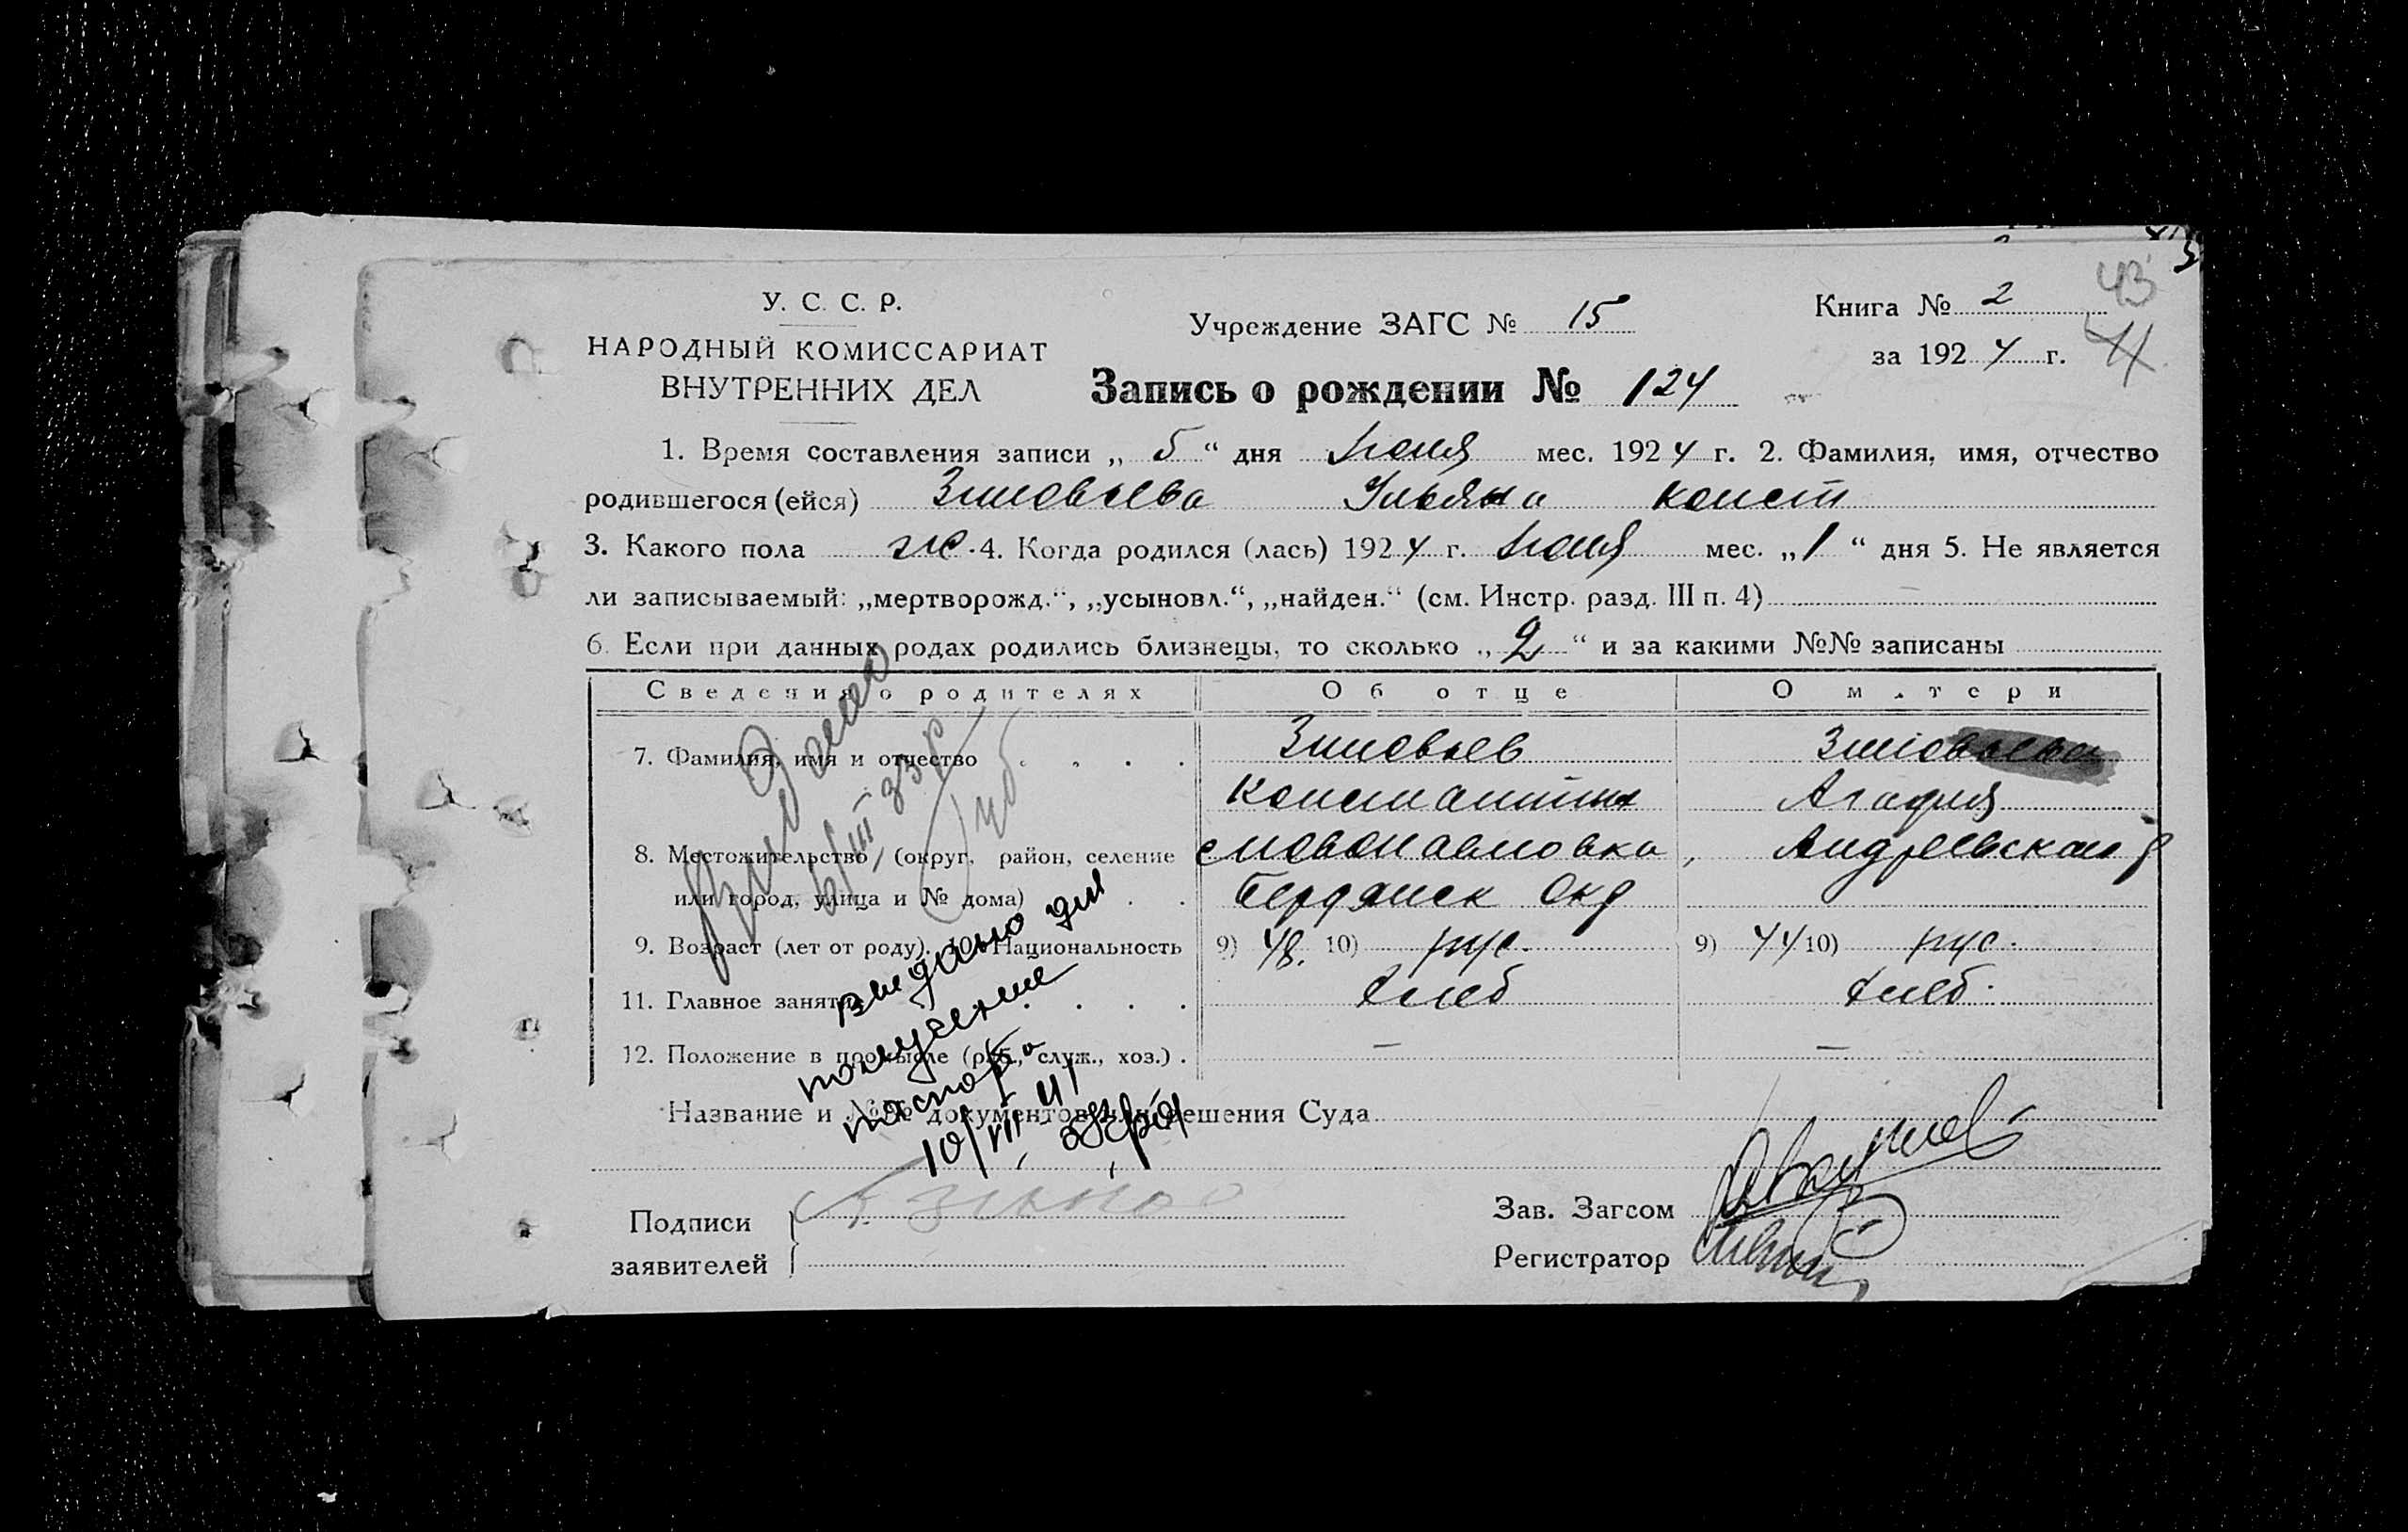 У. С. С. Р.
НАРОДНЫЙ КОМИССАРИАТ
ВНУТРЕННИХ ДЕЛ
Учреждение ЗАГС № 15
Книга № 2
43
за 1924 г.
Запись о рождении № 124
1. Время составления записи „ 5 “ дня мес. 1924 г. 2. Фамилия, имя, отчество
родившегося (ейся) Зиновьева Ульяна Конст
3. Какого пола ж. 4. Когда родился (лась) 1924 г. мес. „ 1 “ дня 5. Не является
ли записываемый: „мертворожд.“, „усыновл.“, „найден.“ (см. Инстр. разд. III п. 4) —
6. Если при данных родах родились близнецы, то сколько „ 2 “ и за какими №№ записаны
Сведения о родителях Об отце О матери
7. Фамилия, имя и отчество Зиновьев Зиновьева
Константин Агафия
8. Местожительство (округ, район, селение с Новопавловка, Андреевской р
или город, улица и № дома) Бердянск Окр
9. Возраст (лет от роду). 10. Национальность 9) 48. 10) рус. 9) 44 10) рус.
11. Главное занятие Хлеб Хлеб.
12. Положение в промысле (раб., служ., хоз.) — —
Выдано
6/III 33 р
выдано для
получение
паспорта
10/VII 41
Название и №№ документов или решения Суда
Подписи
заявителей
Зав. Загсом
Регистратор